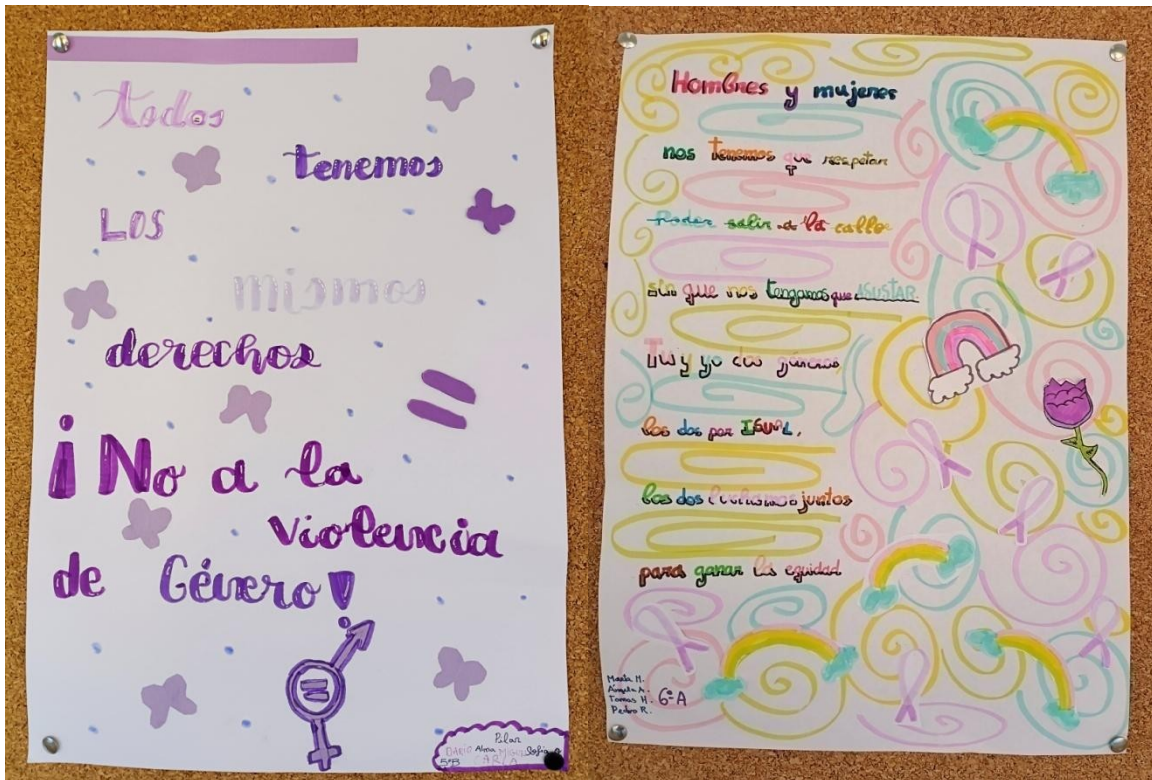 todos
tenemos
Los
mismos
derechos
¡No a la
violencia
de Género!
Pilar
DARIO Alma Sofia
5ºB CARLA
Hombres y mujeres
nos tenemos que respetar
Poder salir a la calle
sin que nos tengamos que ASUSTAR.
Tu y yo dos géneros,
los dos por IGUAL,
los dos luchamos juntos
para ganar la equidad
Marta H.
Ángela A.
Tomas H. 6ºA
Pedro R.